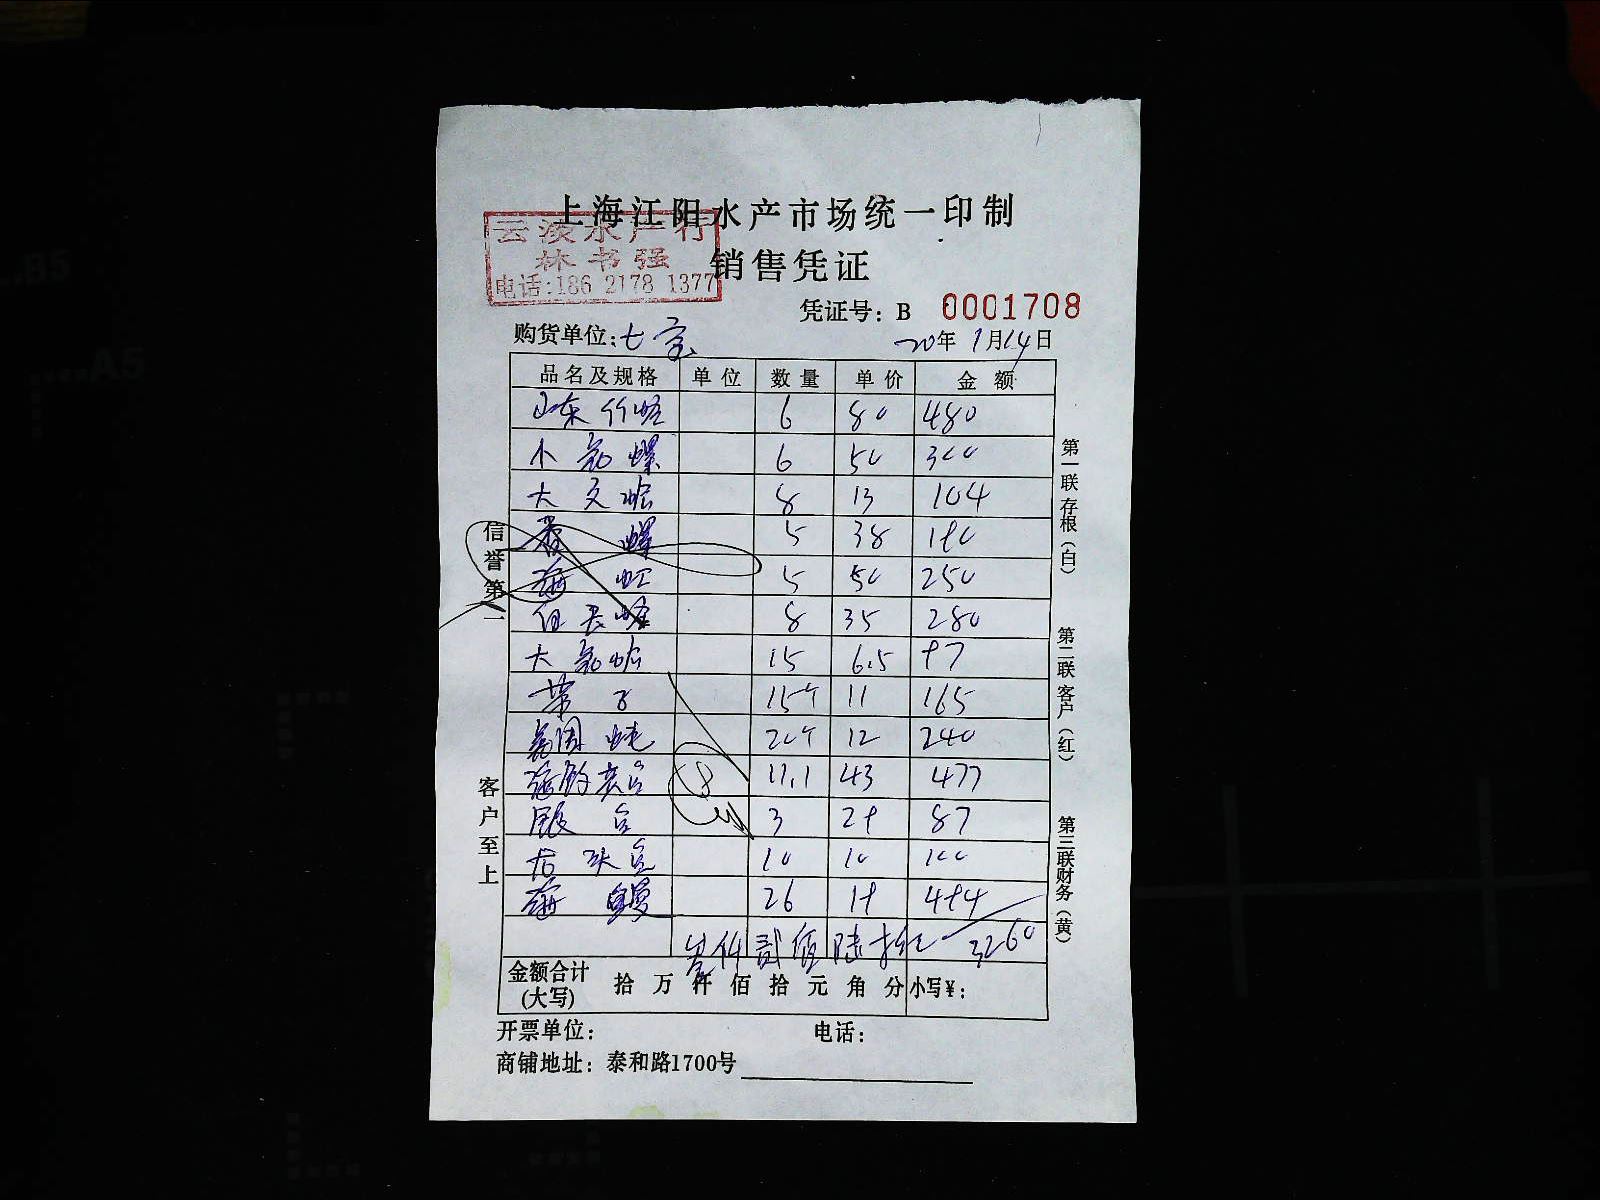 上海江阳水产市场统一印制
云凌水产行
林书强
电话:186 2178 1377
销售凭证
凭证号: B 0001708
购货单位: 七宝
20年 1月14日
品名及规格 单位 数量 单价 金额
山东竹蛏 6 80 480
小 螺 6 50 300
大文蛤 8 13 104
香螺 5 38 190
海虹 5 50 250
蛏 8 35 280
大 蛤 15 6.5 97
带子 15个 11 165
20个 12 240
海 11.1 43 477
3 29 87
10 10 100
海鳗 26 19 494
叁仟贰佰陆拾元 3260
金额合计(大写) 拾 万 仟 佰 拾 元 角 分 小写¥:
开票单位: 电话:
商铺地址: 泰和路1700号
信誉第一
客户至上
第一联存根(白)
第二联客户(红)
第三联财务(黄)